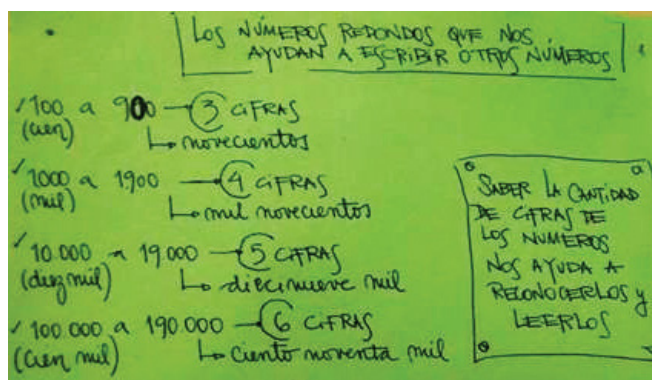 LOS NÚMEROS REDONDOS QUE NOS
AYUDAN A ESCRIBIR OTROS NÚMEROS
✓ 100 a 900 → 3 CIFRAS
(cien) ↳ novecientos
✓ 1000 a 1900 → 4 CIFRAS
(mil) ↳ mil novecientos
✓ 10.000 a 19.000 → 5 CIFRAS
(diez mil) ↳ diecinueve mil
✓ 100.000 a 190.000 → 6 CIFRAS
(cien mil) ↳ ciento noventa mil
SABER LA CANTIDAD
DE CIFRAS TE
LOS NUMEROS
NOS AYUDA A
RECONOCERLOS y
LEERLOS